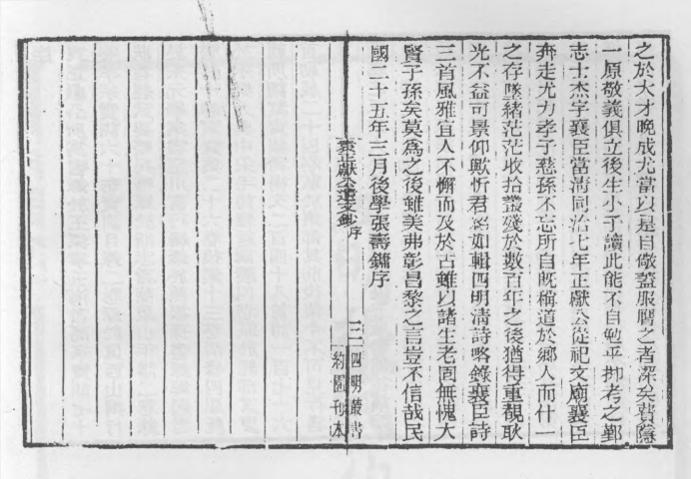 之於大才晚成尤當以是自儆蓋服膺之者深矣贊蔭
一原敬義俱立後生小子讀此能不自勉乎抑考之鄞
志士杰字襄臣當淸同治七年正獻公從祀文廟襄臣
奔走尤力孝子慈孫不忘所自旣稱道於鄉人而什一
之存墜緖茫茫收拾叢殘於數百年之後猶得重覩耿
光不益可景仰歟忻君紹如輯四明淸詩略錄襄臣詩
三首風雅宜人不懈而及於古雖以諸生老固無愧大
賢子孫矣莫爲之後雖美弗彰昌黎之言豈不信哉民
國二十五年三月後學張壽鏞序
袁正獻公遺文鈔 序
三
四明叢書
約園刊本